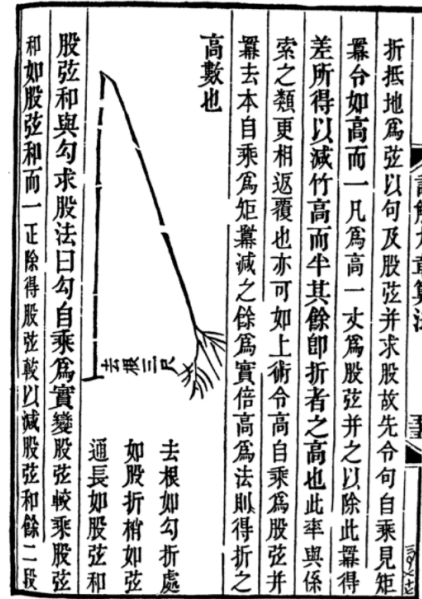 折抵地爲弦以句及股弦并求股故先令句自乘見矩
羃台如高而一凡爲高一丈爲股弦并之以除此羃得
差所得以減竹高而半其餘卽折者之高也此率與係
索之類更相返覆也亦可如上術令高自乘爲股弦并
羃去本自乘爲矩羃減之餘爲實倍高爲法則得折之
高數也
去根三尺
去根如勾折處
如股折梢如弦
通長如股弦和
股弦和與勾求股法曰勾自乘爲實變股弦較乘股弦
和如股弦和而一正除得股弦較以減股弦和餘二段